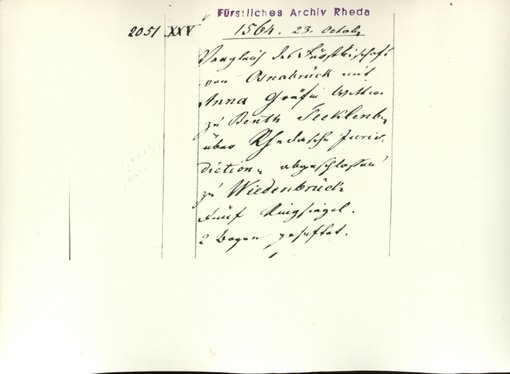 Fürstliches Archiv Rheda
2051 XXV 1564. 23. Octobr
Vergleich des Fürstbischofs
von Osnabrück mit
Anna Gräfin Wittwe
zu Benth. Tecklenb.
über Rhedasche Juris-
diction, abgeschlossen
zu Wiedenbrück
Fünf Ringsiegel.
2 Bogen, geheftet.